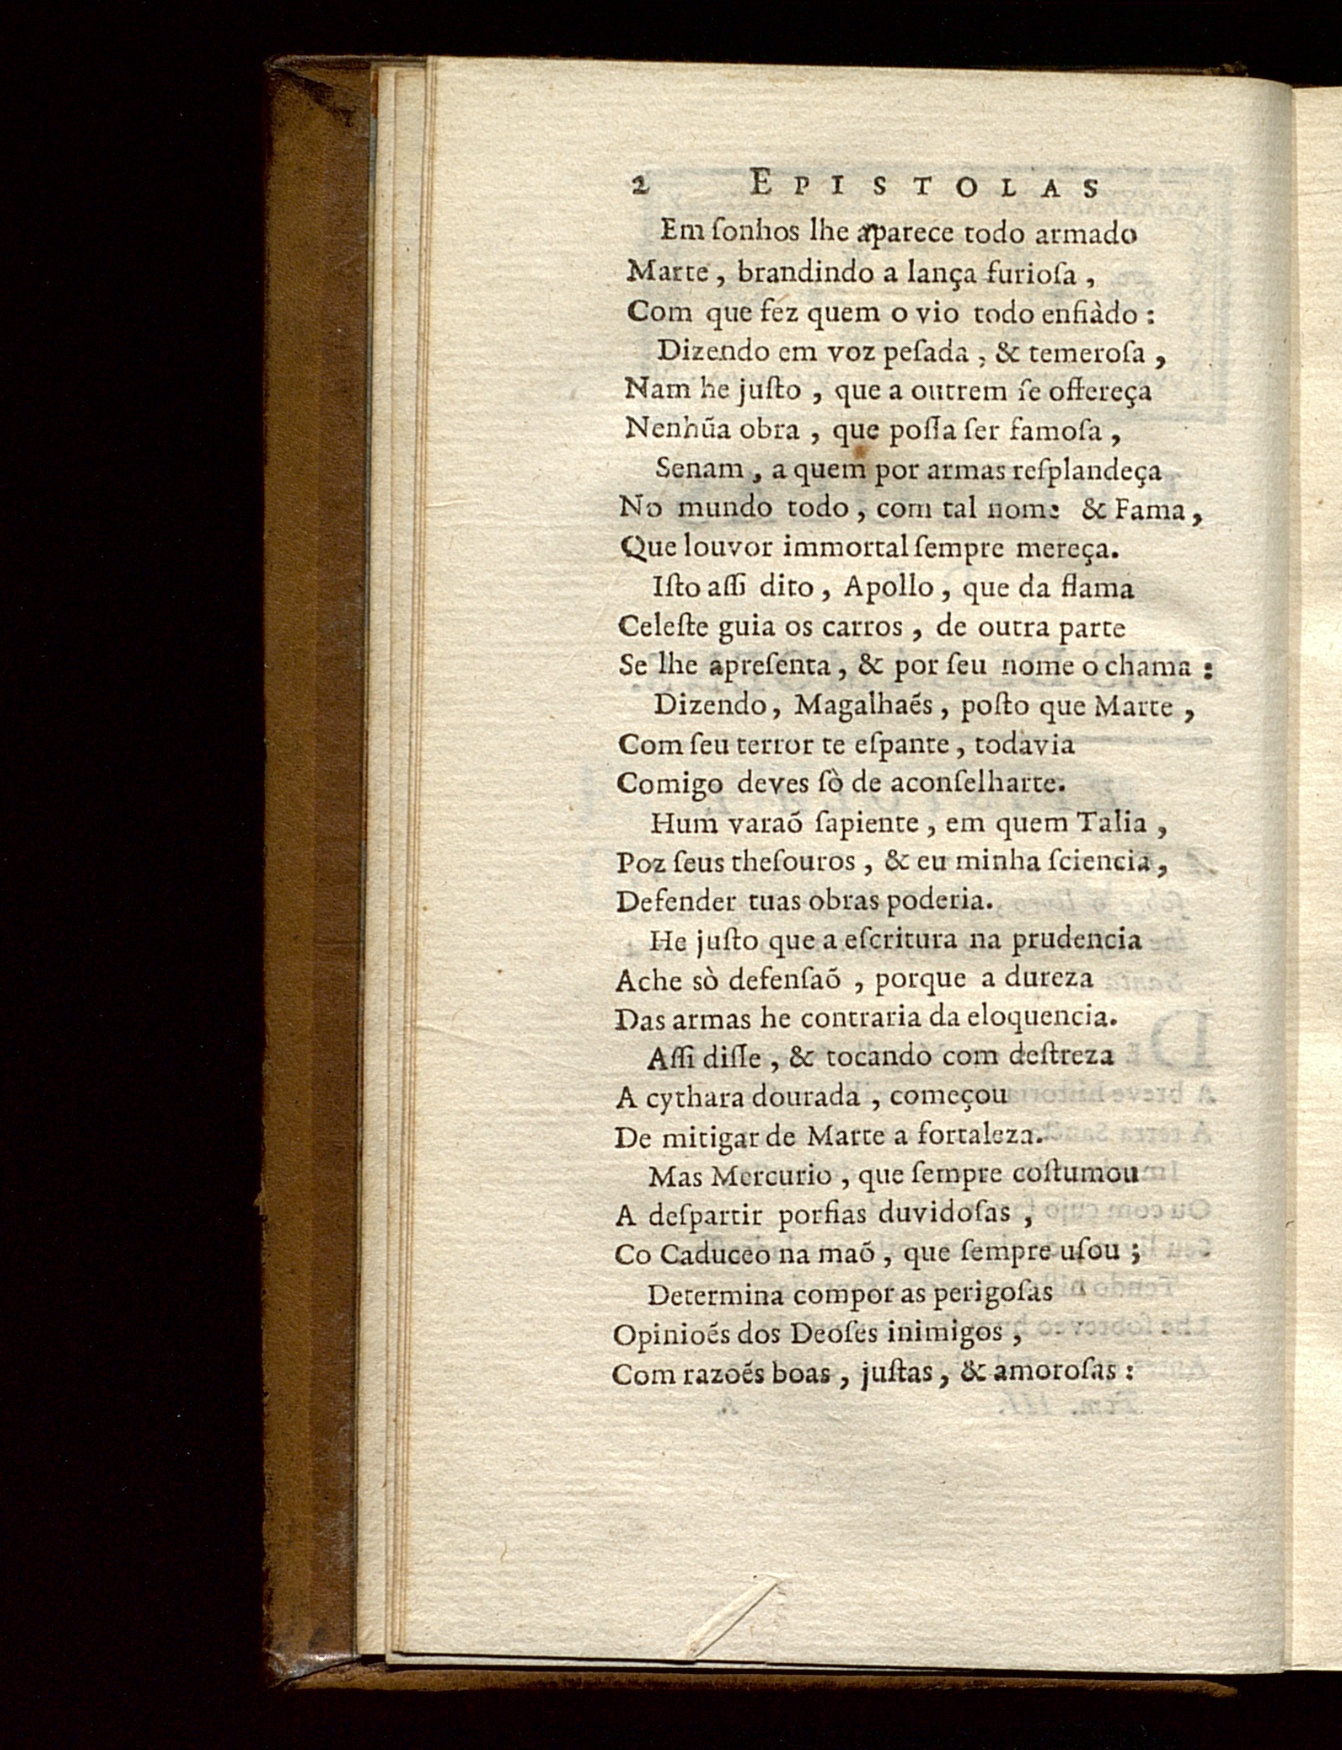 2 EPISTOLAS
Em ſonhos lhe aparece todo armado
Marte, brandindo a lança furioſa,
Com que féz quem o vio todo enfiàdo:
Dizendo em voz peſada, & temeroſa,
Nam he juſto, que a outrem ſe offereça
Nenhũa obra, que poſſa ſer famoſa,
Senam, a quem por armas reſplandeça
No mundo todo, com tal nome & Fama,
Que louvor immortal ſempre mereça.
Iſto aſſi dito, Apollo, que da flama
Celeſte guia os carros, de outra parte
Se lhe apreſenta, & por ſeu nome o chama:
Dizendo, Magalhaẽs, poſto que Marte,
Com ſeu terror te eſpante, todavia
Comigo deves ſò de aconſelharte.
Hum varaõ ſapiente, em quem Talia,
Poz ſeus theſouros, & eu minha ſciencia,
Defender tuas obras poderia.
He juſto que a eſcritura na prudencia
Ache sò defenſaõ, porque a dureza
Das armas he contraria da eloquencia.
Aſſi diſſe, & tocando com deſtreza
A cythara dourada, começou
De mitigar de Marte a fortaleza.
Mas Mercurio, que ſempre coſtumou
A deſpartir porfias duvidoſas,
Co Caduceo na maõ, que ſempre uſou;
Determina compor as perigoſas
Opinioẽs dos Deoſes inimigos,
Com razoẽs boas, juſtas, & amoroſas: